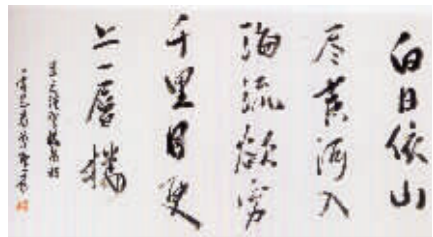 白日依山
尽黄河入
海流欲穷
千里目更
上一層樓